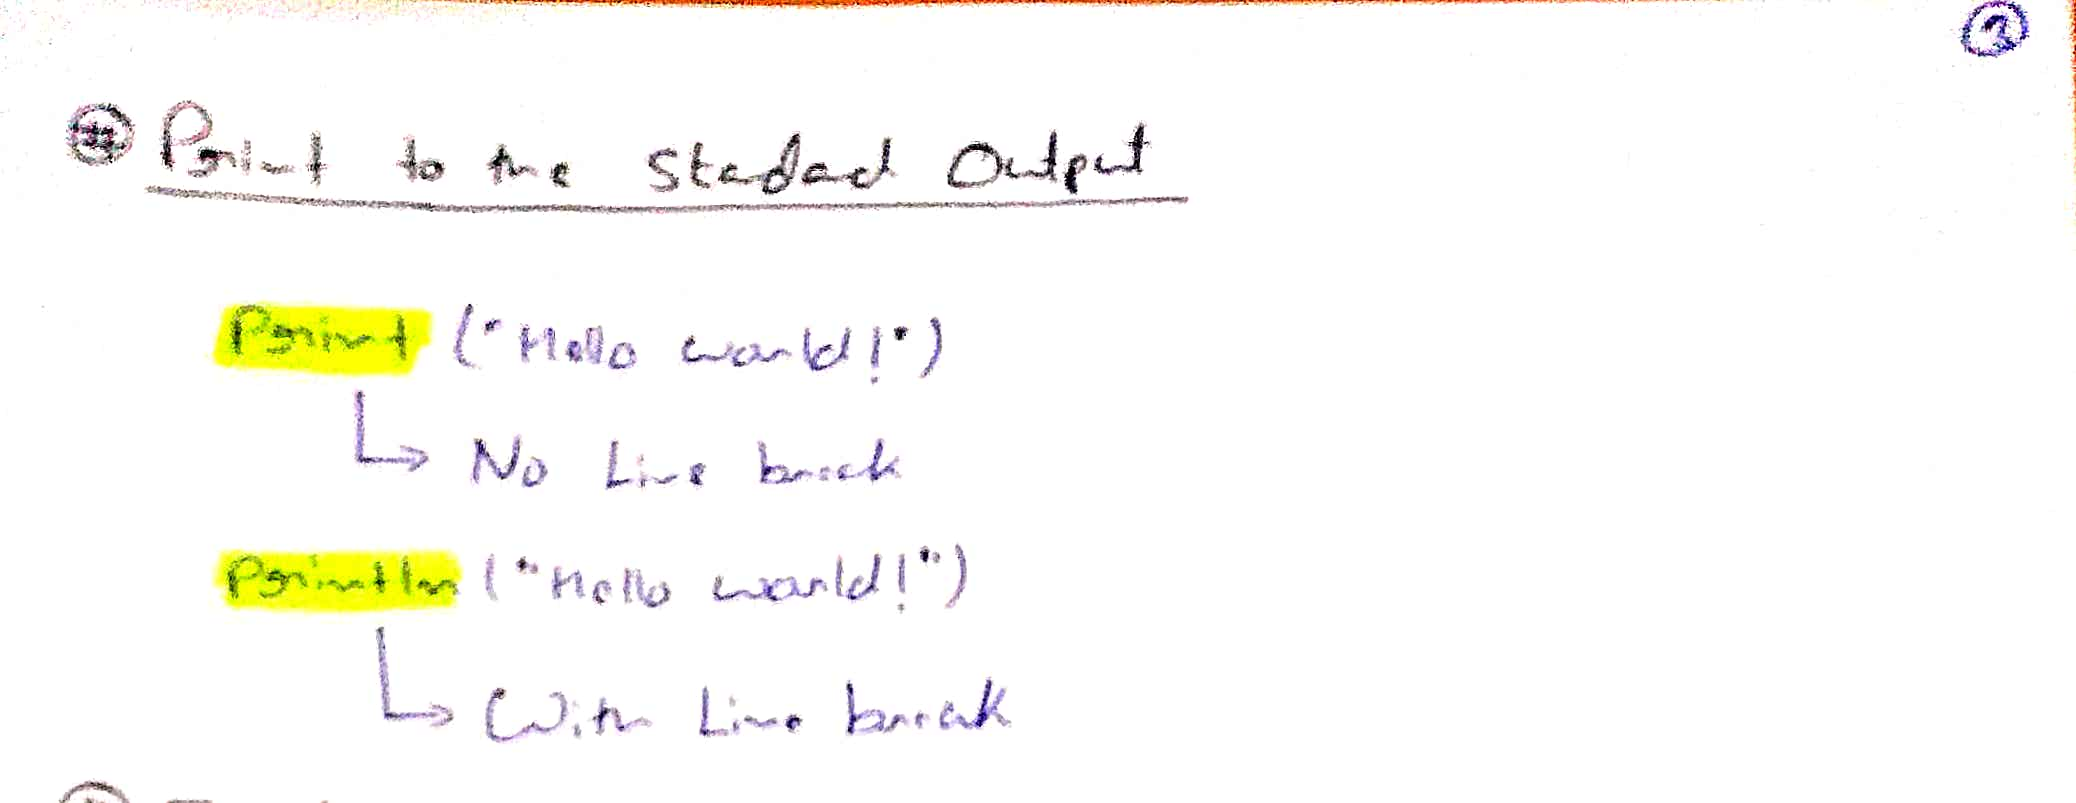 3
# Print to the Stadard Output
Print ("Hello world!")
↳ No Line break
Println ("Hello world!")
↳ With Line break